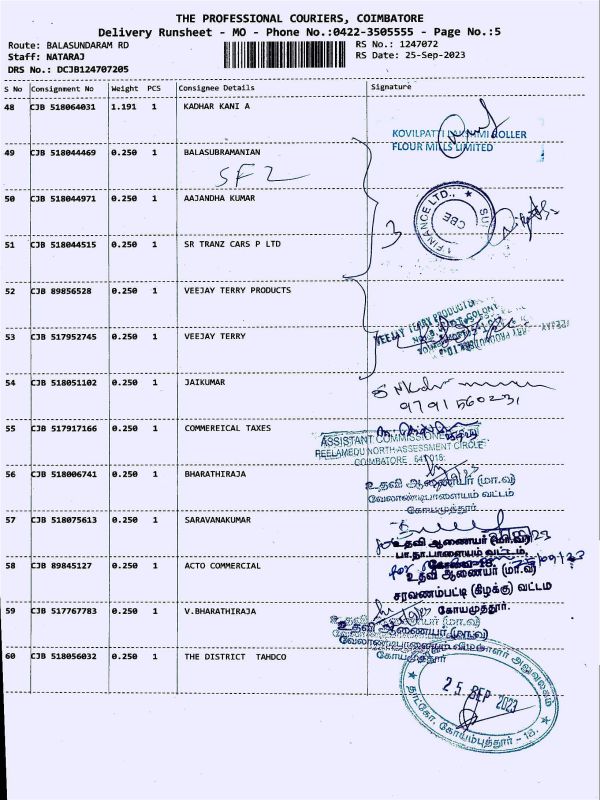 THE PROFESSIONAL COURIERS, COIMBATORE
Delivery Runsheet - MO - Phone No.:0422-3505555 - Page No.:5
Route: BALASUNDARAM RD
RS No.: 1247072
Staff: NATARAJ
RS Date: 25-Sep-2023
DRS No.: DCJB124707205
S No Consignment No Weight PCS Consignee Details Signature
48 CJB 518064031 1.191 1 KADHAR KANI A
KOVILPATTI LAKSHMI ROLLER
FLOUR MILLS LIMITED
49 CJB 518044469 0.250 1 BALASUBRAMANIAN
SF2
50 CJB 518044971 0.250 1 AAJANDHA KUMAR
3
FINANCE LTD.,
CBE
51 CJB 518044515 0.250 1 SR TRANZ CARS P LTD
52 CJB 89856528 0.250 1 VEEJAY TERRY PRODUCTS
VEEJAY TERRY PRODUCTS
53 CJB 517952745 0.250 1 VEEJAY TERRY
54 CJB 518051102 0.250 1 JAIKUMAR
9791560231
55 CJB 517917166 0.250 1 COMMEREICAL TAXES
ASSISTANT COMMISSIONER
PEELAMEDU NORTH ASSESSMENT CIRCLE
COIMBATORE 641018
56 CJB 518006741 0.250 1 BHARATHIRAJA
உதவி ஆணையர் (மா.வ)
வேலாண்டிபாளையம் வட்டம்
கோயமுத்தூர்
57 CJB 518075613 0.250 1 SARAVANAKUMAR
உதவி ஆணையர் (மா.வ)
பா.நா.பாளையம் வட்டம்,
கோவை-18.
58 CJB 89845127 0.250 1 ACTO COMMERCIAL
உதவி ஆணையர் (மா.வ)
சரவணம்பட்டி (கிழக்கு) வட்டம்
கோயமுத்தூர்.
59 CJB 517767783 0.250 1 V.BHARATHIRAJA
உதவி ஆணையர் (மா.வ)
கோயமுத்தூர்
60 CJB 518056032 0.250 1 THE DISTRICT TAHDCO
25 SEP 2023
தாட்கோ, கோயம்புத்தூர் - 18.